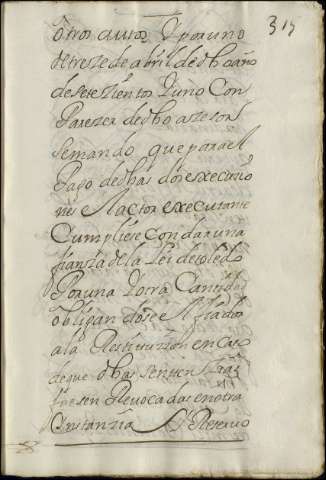 315
otros autos Y por uno
de trese de abril de dho año
de sete sientos Y uno Con
Pareser de dho asesor se
semando que para el
Pago de dhas dos execusio
nes el actor executante
Cumpliese con dar una
fiansa de la Lei de toledo
Por una Y otra Cantidad
obligandose el fiador
a la Restitusion en caso
de que dhas sentensias
fuesen Revocadas en otra
Instansia Y Reservo